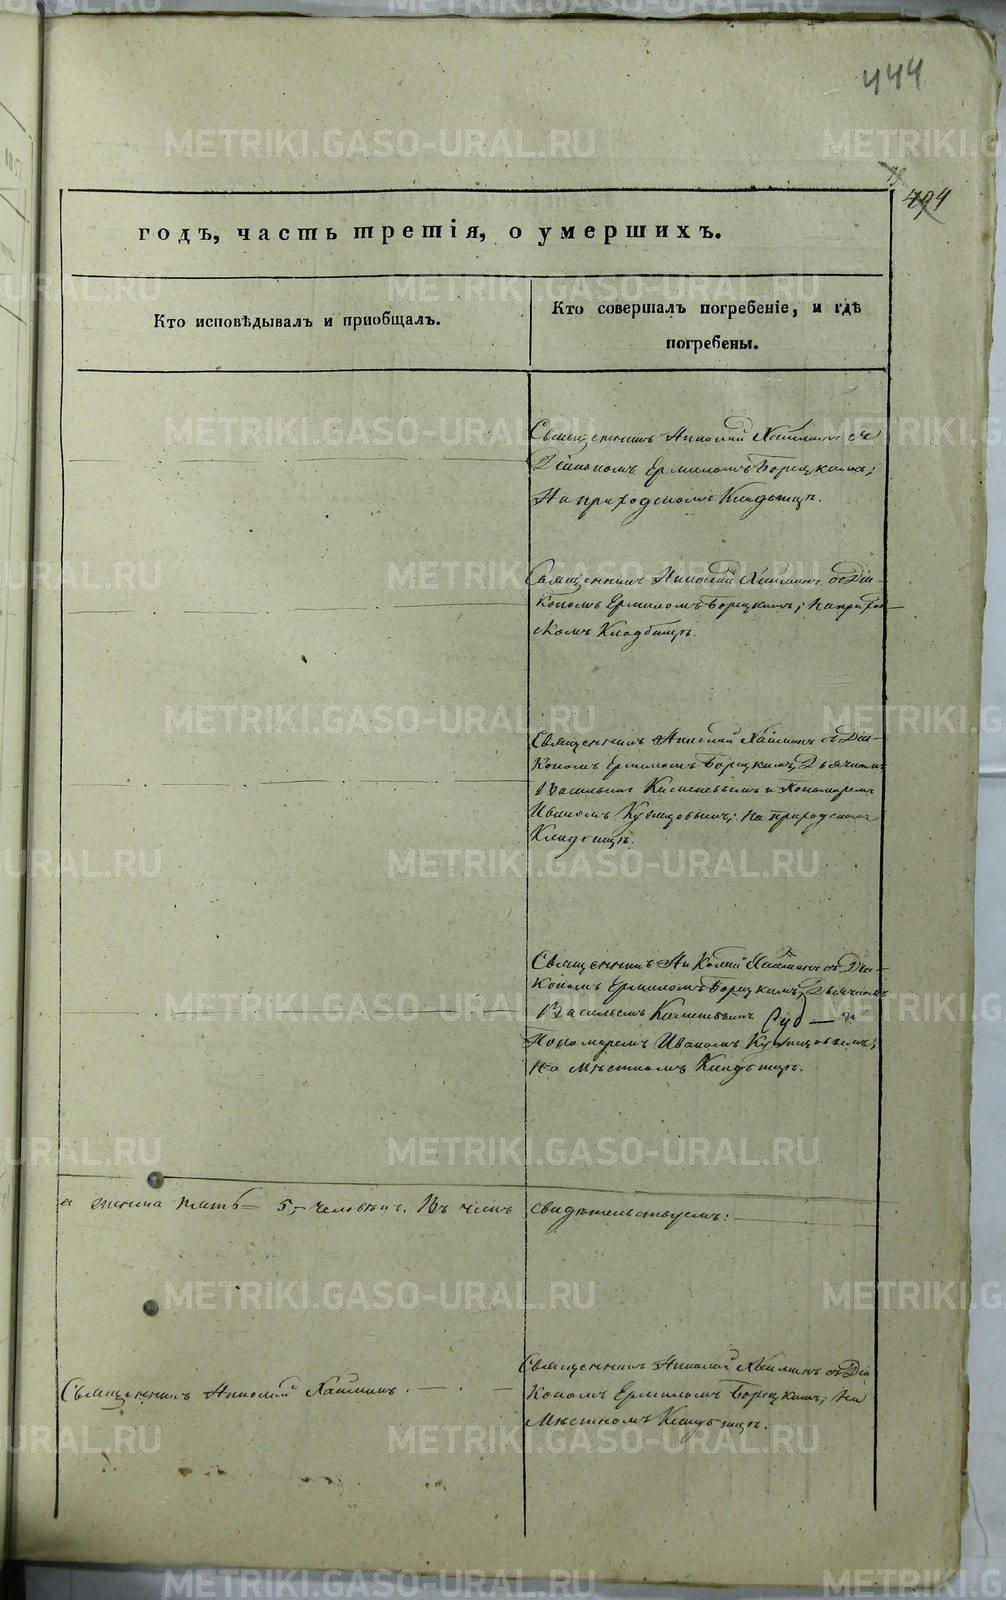 444
494
годъ, часть третія, о умершихъ.
Кто исповѣдывалъ и пріобщалъ.
Кто совершалъ погребеніе, и гдѣ
погребены.
Священникъ Николай Хаймин съ
Діакономъ Ермиломъ Борецкимъ;
На приходскомъ Кладбищѣ.
Священникъ Николай Хайминъ съ Діа-
кономъ Ермиломъ Борецкимъ; На приход-
скомъ Кладбищѣ.
Священникъ Николай Хайминъ съ Діа-
кономъ Ермиломъ Борецкимъ, Дьячкомъ
Васильемъ и Пономаремъ
Иваномъ Кузнецовымъ; на приходскомъ
Кладбищѣ.
Священникъ Николай Хайминъ съ Діа-
кономъ Ермиломъ Борецкимъ, Дьячкомъ
Васильемъ и
Пономаремъ Иваномъ Кузнецовымъ;
на мѣстномъ Кладбищѣ.
пять 5,- человѣкъ. Въ чемъ свидѣтельствуемъ:
Священникъ Николай Хайминъ.
Священникъ Николай Хайминъ съ Діа
кономъ Ермиломъ Борецкимъ; На
Мѣстномъ Кладбищѣ.
METRIKI.GASO-URAL.RU